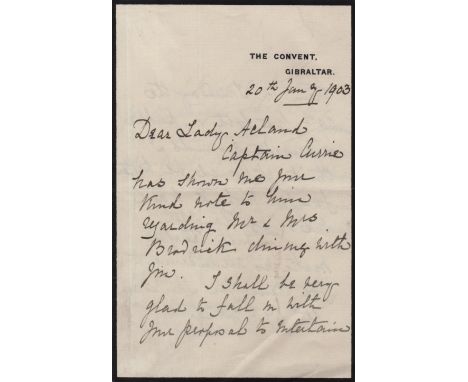 THE CONVENT.
GIBRALTAR.
20th Jany 1903
Dear Lady Acland
Captain Currie
has shown me your
kind note to him
regarding Mr & Mrs
Brodrick dining with
you.
I shall be very
glad to fall in with
your proposal to entertain